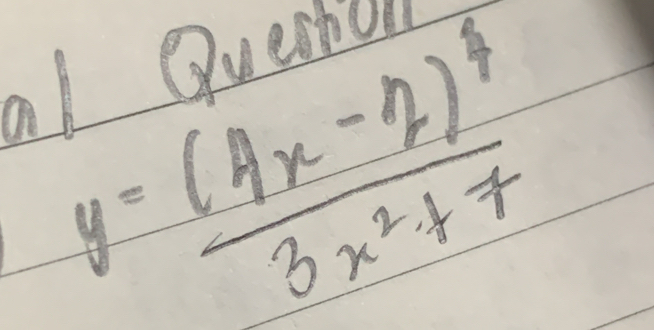 al Question
y = (4x - 2)⁷
3x² + 7